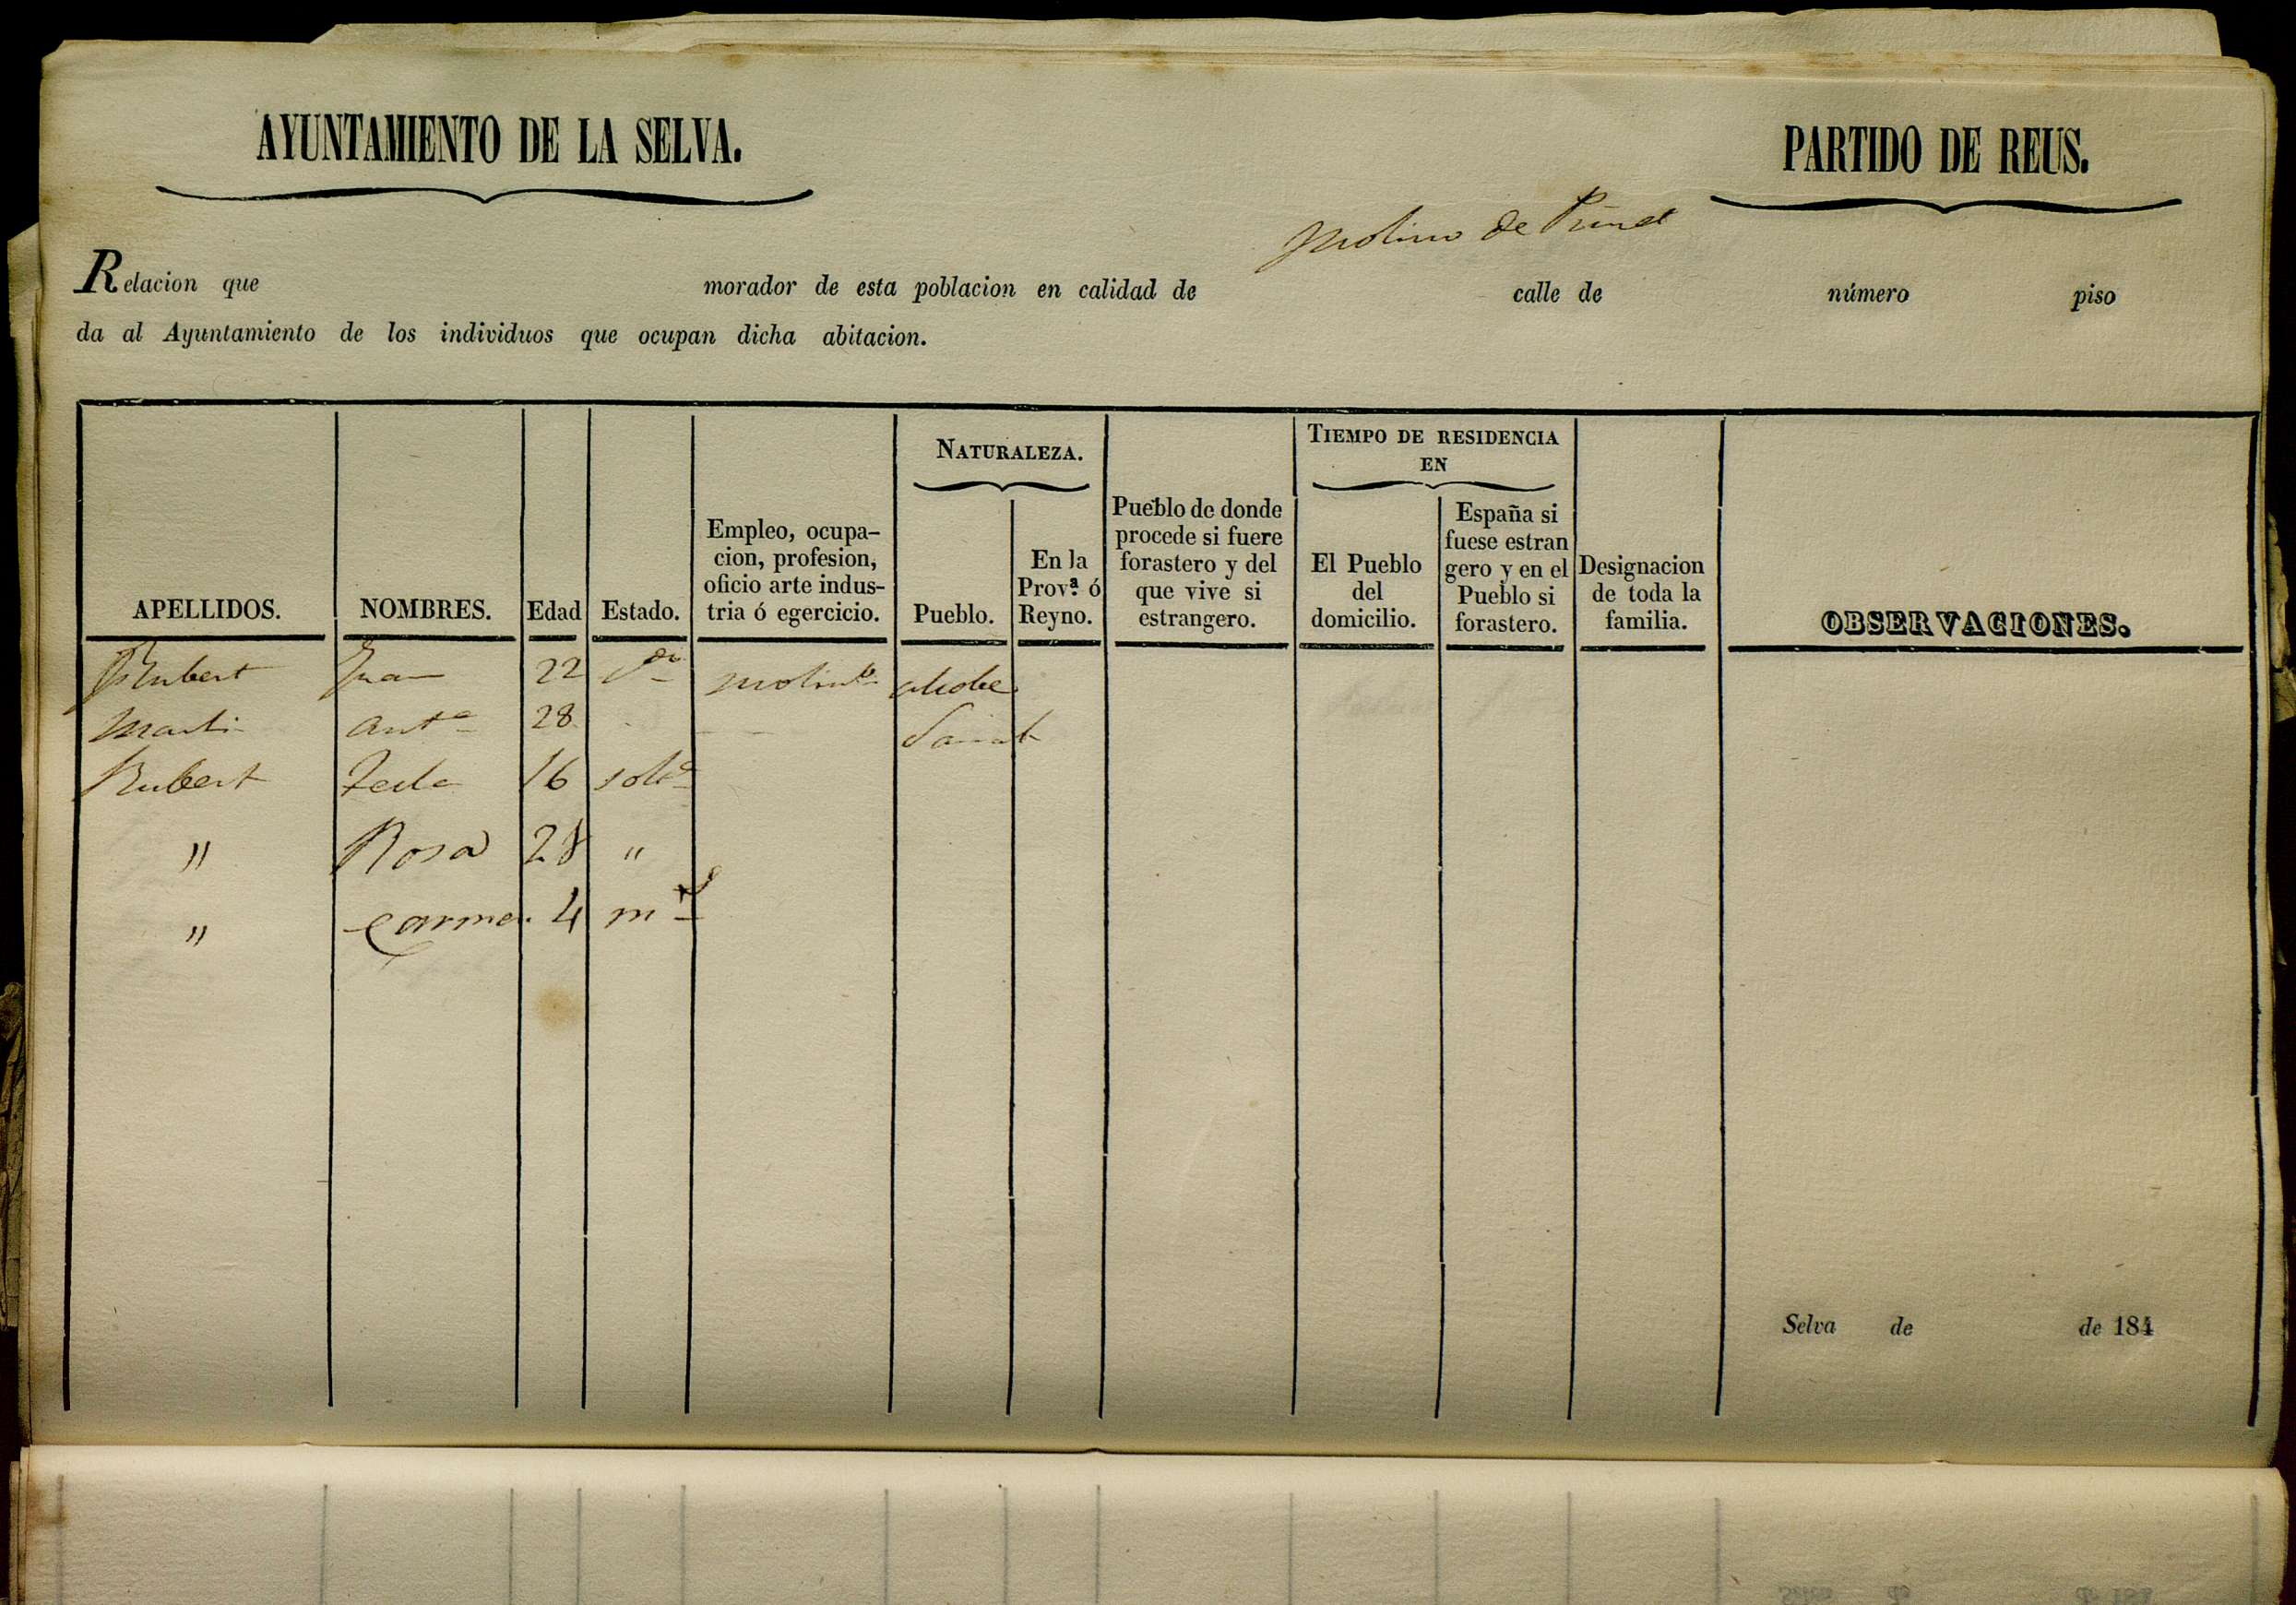 AYUNTAMIENTO DE LA SELVA. PARTIDO DE REUS.
Molino de
Relacion que morador de esta poblacion en calidad de calle de número piso
da al Ayuntamiento de los individuos que ocupan dicha abitacion.
NATURALEZA. TIEMPO DE RESIDENCIA EN
APELLIDOS. NOMBRES. Edad Estado. Empleo, ocupa-
cion, profesion,
oficio arte indus-
tria ó egercicio. Pueblo. En la
Prov.ª ó
Reyno. Pueblo de donde
procede si fuere
forastero y del
que vive si
estrangero. El Pueblo
del
domicilio. España si
fuese estran
gero y en el
Pueblo si
forastero. Designacion
de toda la
familia. OBSERVACIONES.
Rubert Juan 22
Marti Ant.ª 28
Rubert Tecla 16 solt.ª
" Rosa 28 "
" Carmen 4 m
Selva de de 184